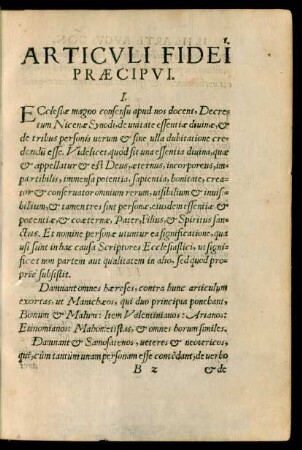 1.
ARTICVLI FIDEI
PRÆCIPVI.
I.
ECclesiæ magno consensu apud nos docent, Decre-
tum Nicenæ Synodi, de unitate essentiæ diuinæ, &
de tribus personis uerum & sine ulla dubitatione cre-
dendũ esse. Videlicet, quòd sit una essentia diuina, quæ
& appellatur & est Deus, æternus, incorporeus, im-
partibilis, immensa potentia, sapientia, bonitate, crea-
tor & conseruator omnium rerum, uisibilium & inui-
sibilium, & tamen tres sint personæ, eiusdem essentiæ &
potentiæ, & coæternæ, Pater, Filius, & Spiritus san-
ctus. Et nomine personæ utuntur ea significatione, qua
usi sunt in hac causa Scriptores Ecclesiastici, ut signifi-
cet non partem aut qualitatem in alio, sed quod pro-
priè subsistit.
Damnant omnes hæreses, contra hunc articulum
exortas, ut Manichæos, qui duo principia ponebant,
Bonum & Malum: Item Valentinianos: Arianos:
Eunomianos: Mahometistas, & omnes horum similes.
Damnant & Samosatenos, ueteres & neotericos,
qui, cùm tantùm unam personam esse contẽdant, de uerbo
B 2 & de